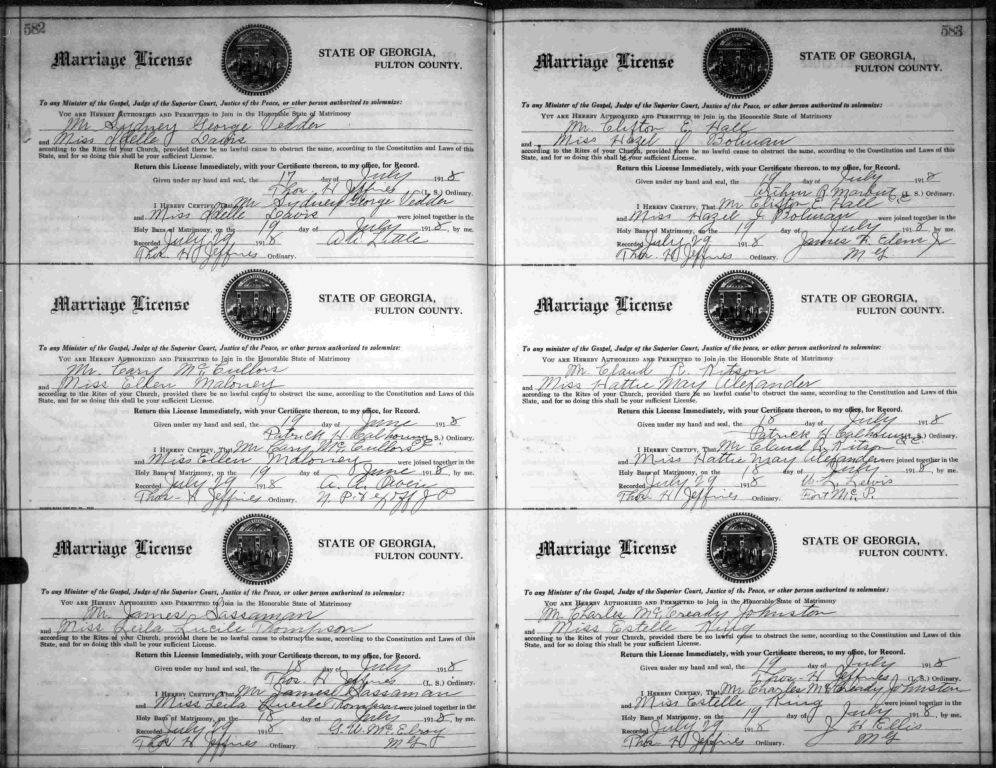 582
Marriage License
STATE OF GEORGIA,
FULTON COUNTY.
To any Minister of the Gospel, Judge of the Superior Court, Justice of the Peace, or other person authorized to solemnize:
YOU ARE HEREBY AUTHORIZED AND PERMITTED to Join in the Honorable State of Matrimony
Mr. Sydney George Tedder
and Miss Idelle Davis
according to the Rites of your Church, provided there be no lawful cause to obstruct the same, according to the Constitution and Laws of this
State, and for so doing this shall be your sufficient License.
Return this License Immediately, with your Certificate thereon, to my office, for Record.
Given under my hand and seal, the 17 day of July 1918
Thos. H. Jeffries (L. S.) Ordinary.
I HEREBY CERTIFY, That Mr Sydney George Tedder
and Miss Idelle Davis were joined together in the
Holy Bans of Matrimony, on the 19 day of July 1918, by me.
Recorded July 29 1918 Little
Thos. H Jeffries Ordinary.
Marriage License
STATE OF GEORGIA,
FULTON COUNTY.
To any Minister of the Gospel, Judge of the Superior Court, Justice of the Peace, or other person authorized to solemnize:
YOU ARE HEREBY AUTHORIZED AND PERMITTED to Join in the Honorable State of Matrimony
Mr. Cary McCullors
and Miss Ellen Maloney
according to the Rites of your Church, provided there be no lawful cause to obstruct the same, according to the Constitution and Laws of this
State, and for so doing this shall be your sufficient License.
Return this License Immediately, with your Certificate thereon, to my office, for Record.
Given under my hand and seal, the 19 day of June 1918
Patrick H Calhoun (L. S.) Ordinary.
I HEREBY CERTIFY, That Mr Cary McCullors
and Miss Ellen Maloney were joined together in the
Holy Bans of Matrimony, on the 19 day of June 1918, by me.
Recorded July 29 1918 A. A.
Thos. H Jeffries Ordinary. N. P. & J P
Marriage License
STATE OF GEORGIA,
FULTON COUNTY.
To any Minister of the Gospel, Judge of the Superior Court, Justice of the Peace, or other person authorized to solemnize:
YOU ARE HEREBY AUTHORIZED AND PERMITTED to Join in the Honorable State of Matrimony
Mr. James Sassaman
and Miss Leila Lucile Thompson
according to the Rites of your Church, provided there be no lawful cause to obstruct the same, according to the Constitution and Laws of this
State, and for so doing this shall be your sufficient License.
Return this License Immediately, with your Certificate thereon, to my office, for Record.
Given under my hand and seal, the 18 day of July 1918
Thos. H Jeffries (L. S.) Ordinary.
I HEREBY CERTIFY, That Mr James Sassaman
and Miss Leila Lucile Thompson were joined together in the
Holy Bans of Matrimony, on the 18 day of July 1918, by me.
Recorded July 29 1918 G. W. McElroy
Thos H Jeffries Ordinary. M G
583
Marriage License
STATE OF GEORGIA,
FULTON COUNTY.
To any Minister of the Gospel, Judge of the Superior Court, Justice of the Peace, or other person authorized to solemnize:
YOU ARE HEREBY AUTHORIZED AND PERMITTED to Join in the Honorable State of Matrimony
Mr. Clifton E. Hall
and Miss Hazel J Bolman
according to the Rites of your Church, provided there be no lawful cause to obstruct the same, according to the Constitution and Laws of this
State, and for so doing this shall be your sufficient License.
Return this License Immediately, with your Certificate thereon, to my office, for Record.
Given under my hand and seal, the 19 day of July 1918
Arthur R Marbut (L. S.) Ordinary.
I HEREBY CERTIFY, That Mr Clifton E. Hall
and Miss Hazel J Bolman were joined together in the
Holy Bans of Matrimony, on the 19 day of July 1918, by me.
Recorded July 29 1918 James F. Edens Jr
Thos. H Jeffries Ordinary. M G
Marriage License
STATE OF GEORGIA,
FULTON COUNTY.
To any minister of the Gospel, Judge of the Superior Court, Justice of the Peace, or other person authorized to solemnize:
YOU ARE HEREBY AUTHORIZED AND PERMITTED to Join in the Honorable State of Matrimony
Mr. Claud R. Witson
and Miss Hattie May Alexander
according to the Rites of your Church, provided there be no lawful cause to obstruct the same, according to the Constitution and Laws of this
State, and for so doing this shall be your sufficient License.
Return this License Immediately, with your Certificate thereon, to my office, for Record.
Given under my hand and seal, the 18 day of July 1918
Patrick H Calhoun (L. S.) Ordinary.
I HEREBY CERTIFY, That Mr Claud R. Witson
and Miss Hattie May Alexander were joined together in the
Holy Bans of Matrimony, on the 18 day of July 1918, by me.
Recorded July 29 1918 W. L. Lewis
Thos H Jeffries Ordinary. Fort Mc. P.
Marriage License
STATE OF GEORGIA,
FULTON COUNTY.
To any Minister of the Gospel, Judge of the Superior Court, Justice of the Peace, or other person authorized to solemnize:
YOU ARE HEREBY AUTHORIZED AND PERMITTED to Join in the Honorable State of Matrimony
Mr. Charles McCready Johnston
and Miss Estelle King
according to the Rites of your Church, provided there be no lawful cause to obstruct the same, according to the Constitution and Laws of this
State, and for so doing this shall be your sufficient License.
Return this License Immediately, with your Certificate thereon, to my office, for Record.
Given under my hand and seal, the 19 day of July 1918
Thos. H Jeffries (L. S.) Ordinary.
I HEREBY CERTIFY, That Mr Charles McCready Johnston
and Miss Estelle King were joined together in the
Holy Bans of Matrimony, on the 19 day of July 1918, by me.
Recorded July 29 1918 J H Ellis
Thos H Jeffries Ordinary. M G